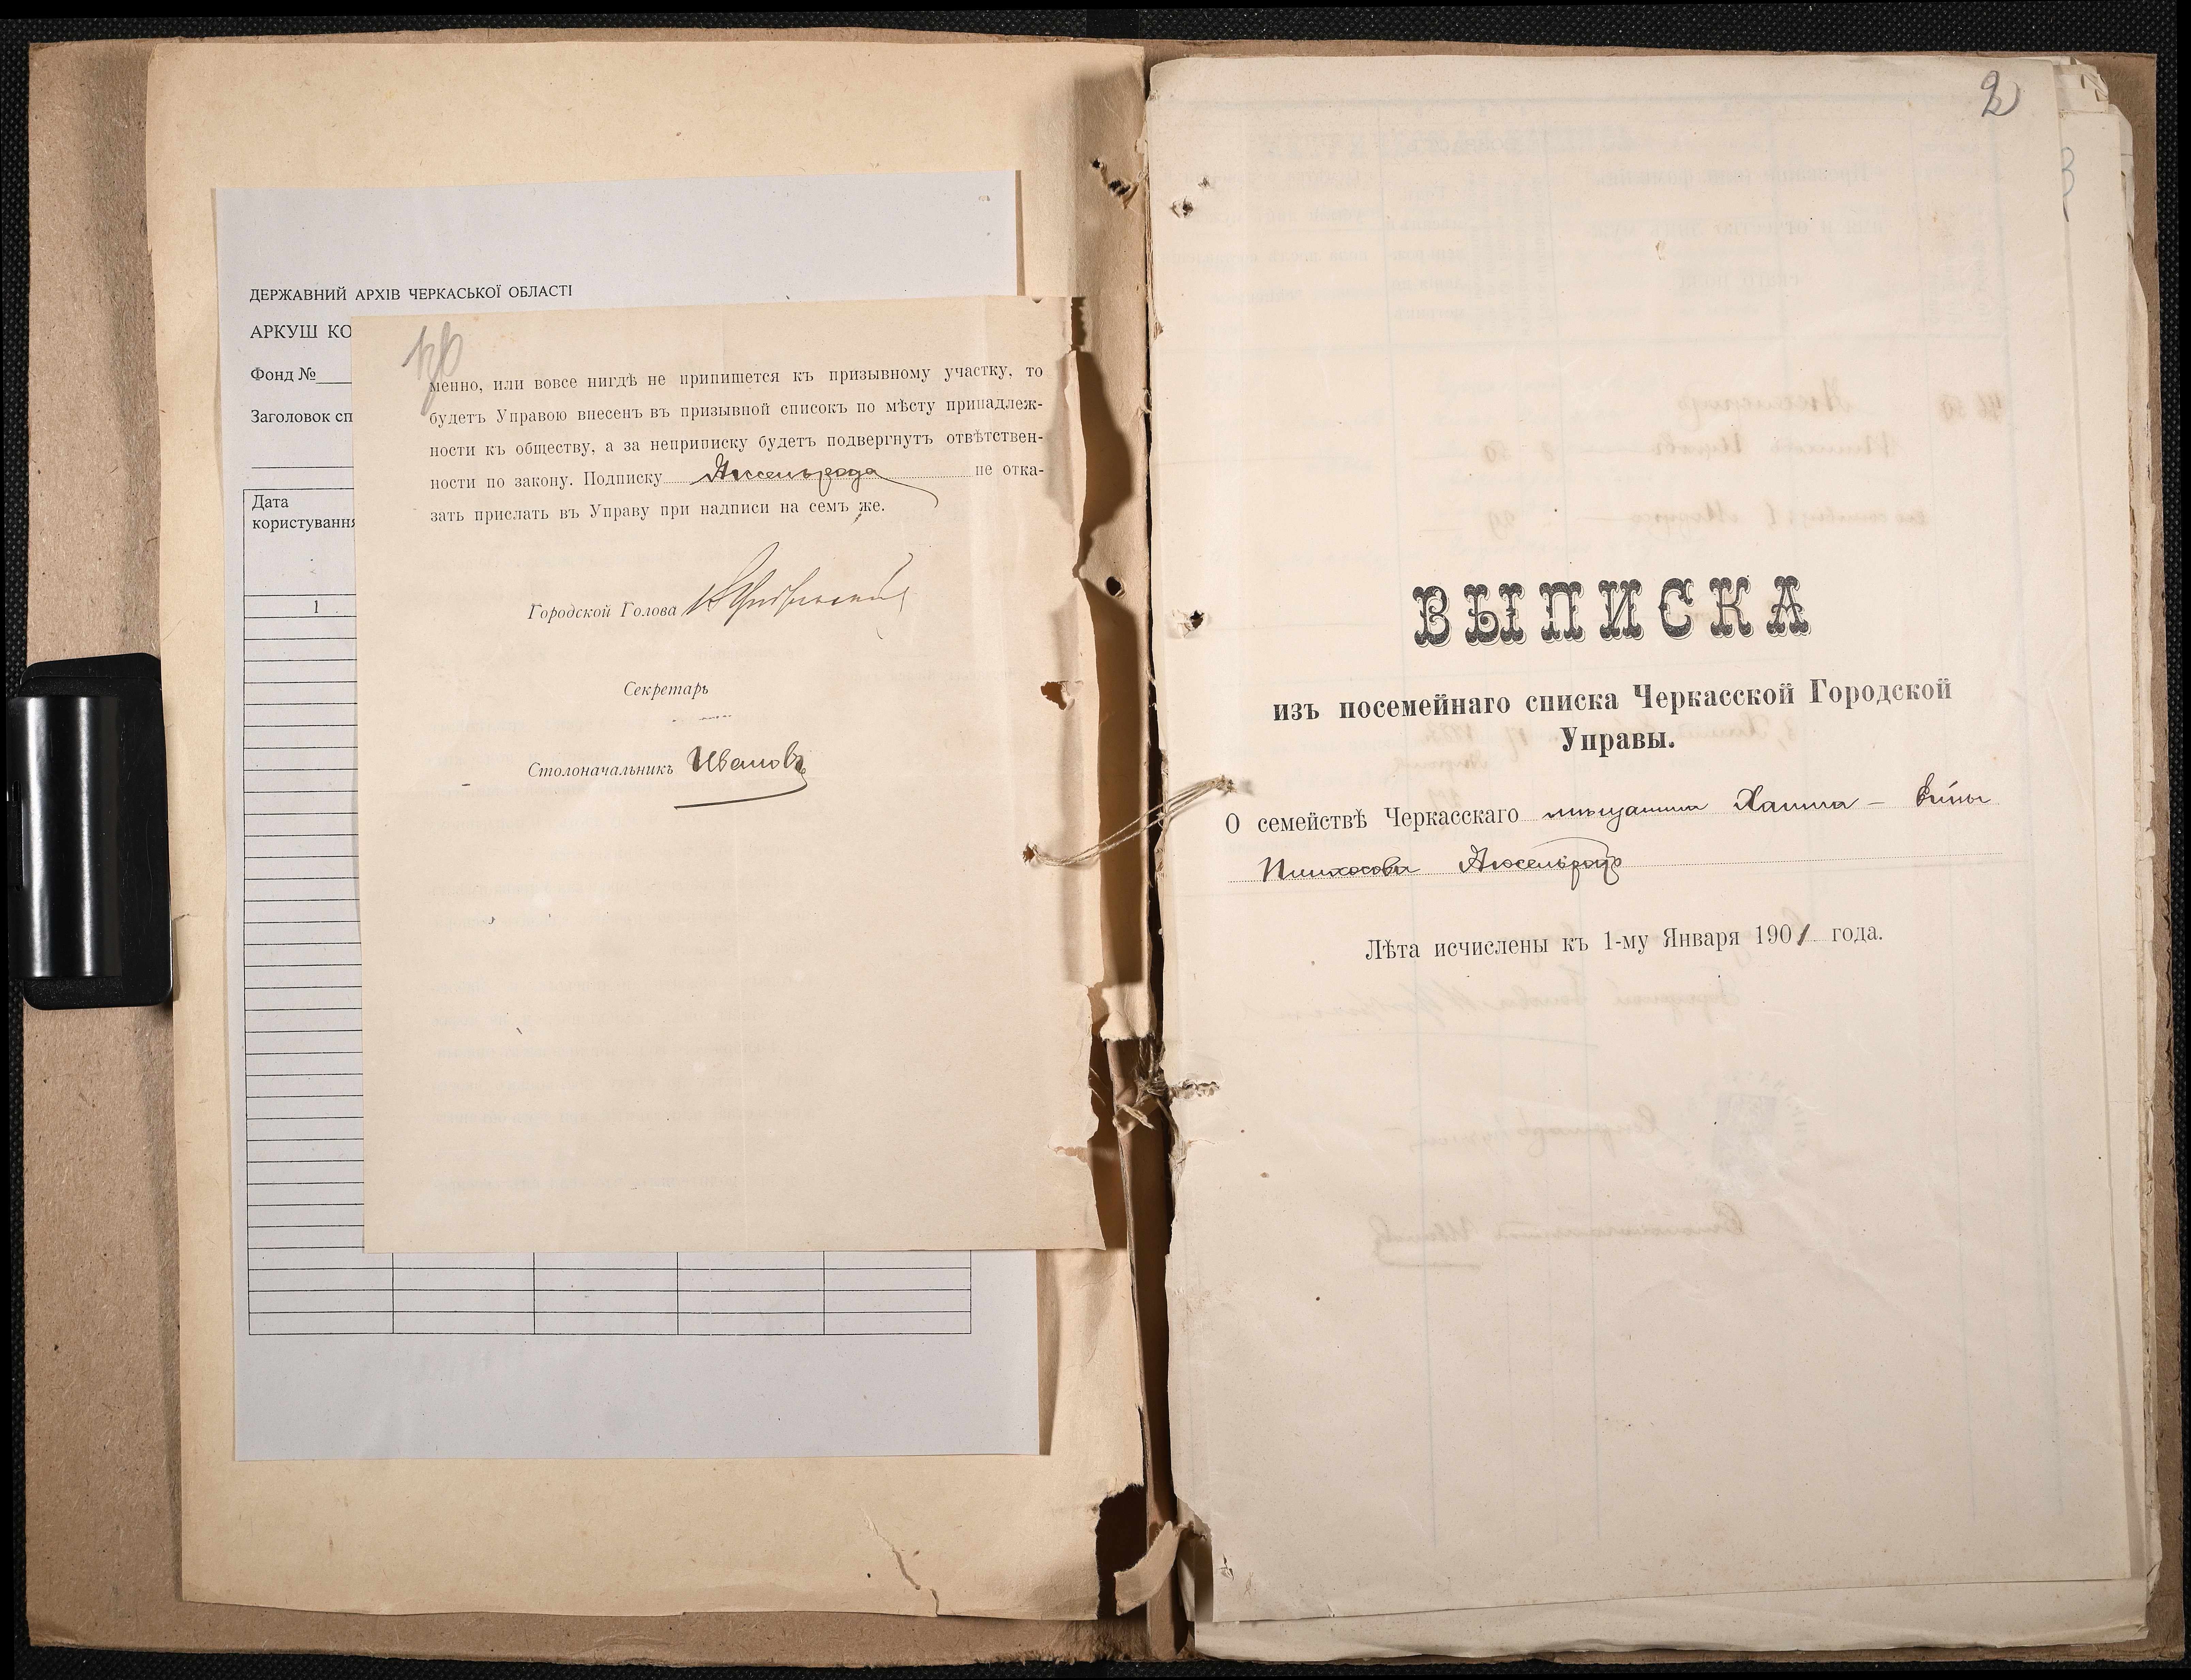 ДЕРЖАВНИЙ АРХІВ ЧЕРКАСЬКОЇ ОБЛАСТІ
АРКУШ КО
Фонд №
Заголовок сп
Дата
користування
1
менно, или вовсе нигдѣ не припишется къ призывному участку, то
будетъ Управою внесенъ въ призывной списокъ по мѣсту принадлеж-
ности къ обществу, а за неприписку будетъ подвергнутъ отвѣтствен-
ности по закону. Подписку Аксельрода не отка-
зать прислать въ Управу при надписи на семъ же.
Городской Голова
Секретарь
Столоначальникъ Ивановъ
2
3
ВЫПИСКА
изъ посемейнаго списка Черкасской Городской
Управы.
О семействѣ Черкасскаго мѣщанина Хаима –
Пинхосова Аксельродъ
Лѣта исчислены къ 1-му Января 1901 года.